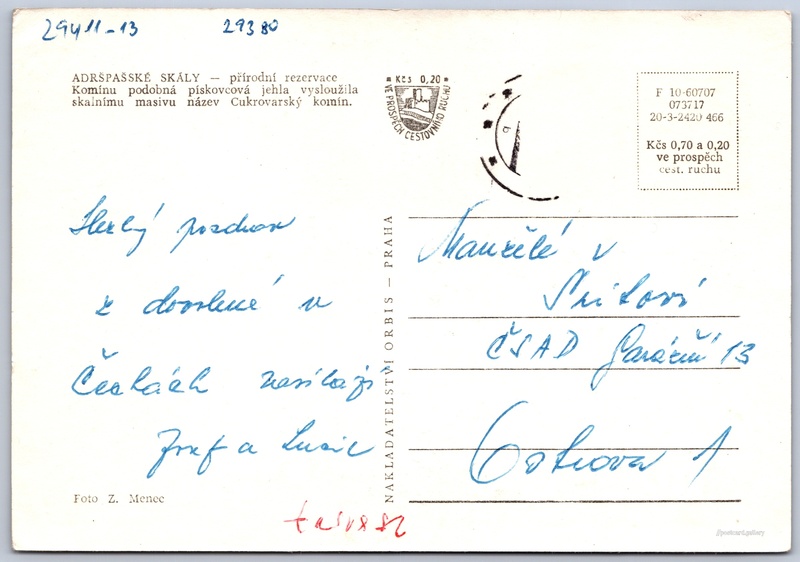 29411-13 29380
ADRŠPAŠSKÉ SKÁLY — přírodní rezervace
Komínu podobná pískovcová jehla vysloužila
skalnímu masivu název Cukrovarský komín.
Kčs 0,20
VE PROSPĚCH CESTOVNÍHO RUCHU
F 10-60707
073717
20-3-2420 466
Kčs 0,70 a 0,20
ve prospěch
cest. ruchu
Hezký pozdrav
z dovolené v
Čechách zasílají
Josef a
NAKLADATELSTVÍ ORBIS — PRAHA
Manželé
ČSAD Garážní 13
Ostrava 1
Foto Z. Menec